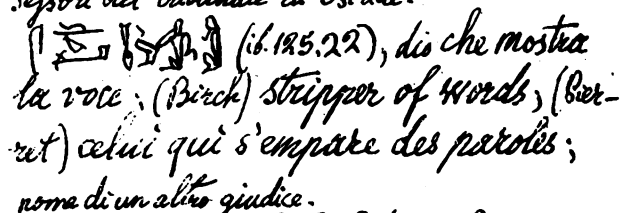 (ib. 125. 22), dio che mostra
la voce; (Birch) stripper of words; (Pier-
ret) celui qui s'empare des paroles;
nome di un altro giudice.